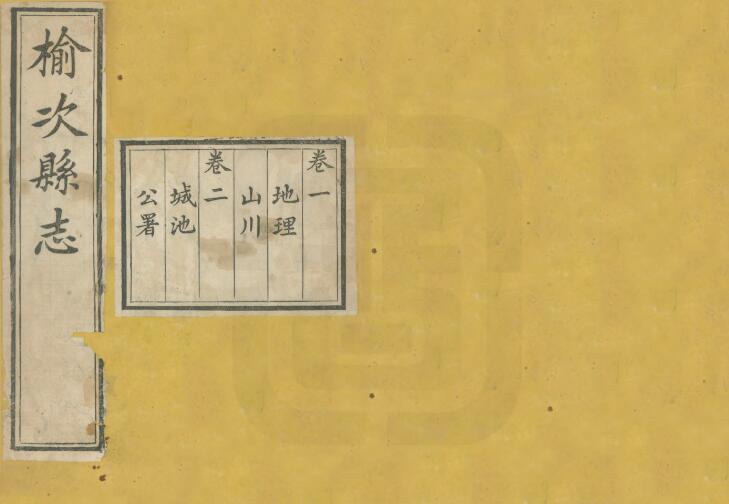 榆次縣志
卷一
地理
山川
卷二
城池
公署